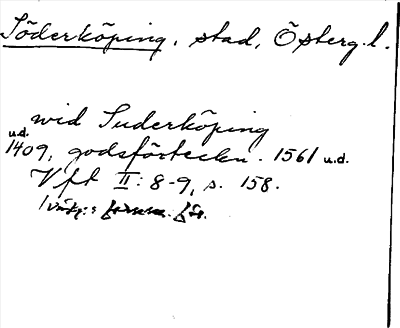 Söderköping, stad, Österg.l.
wid Suderköping
u.d.
1409, godsförteckn. 1561 u.d.
Vft II: 8-9, s. 158.